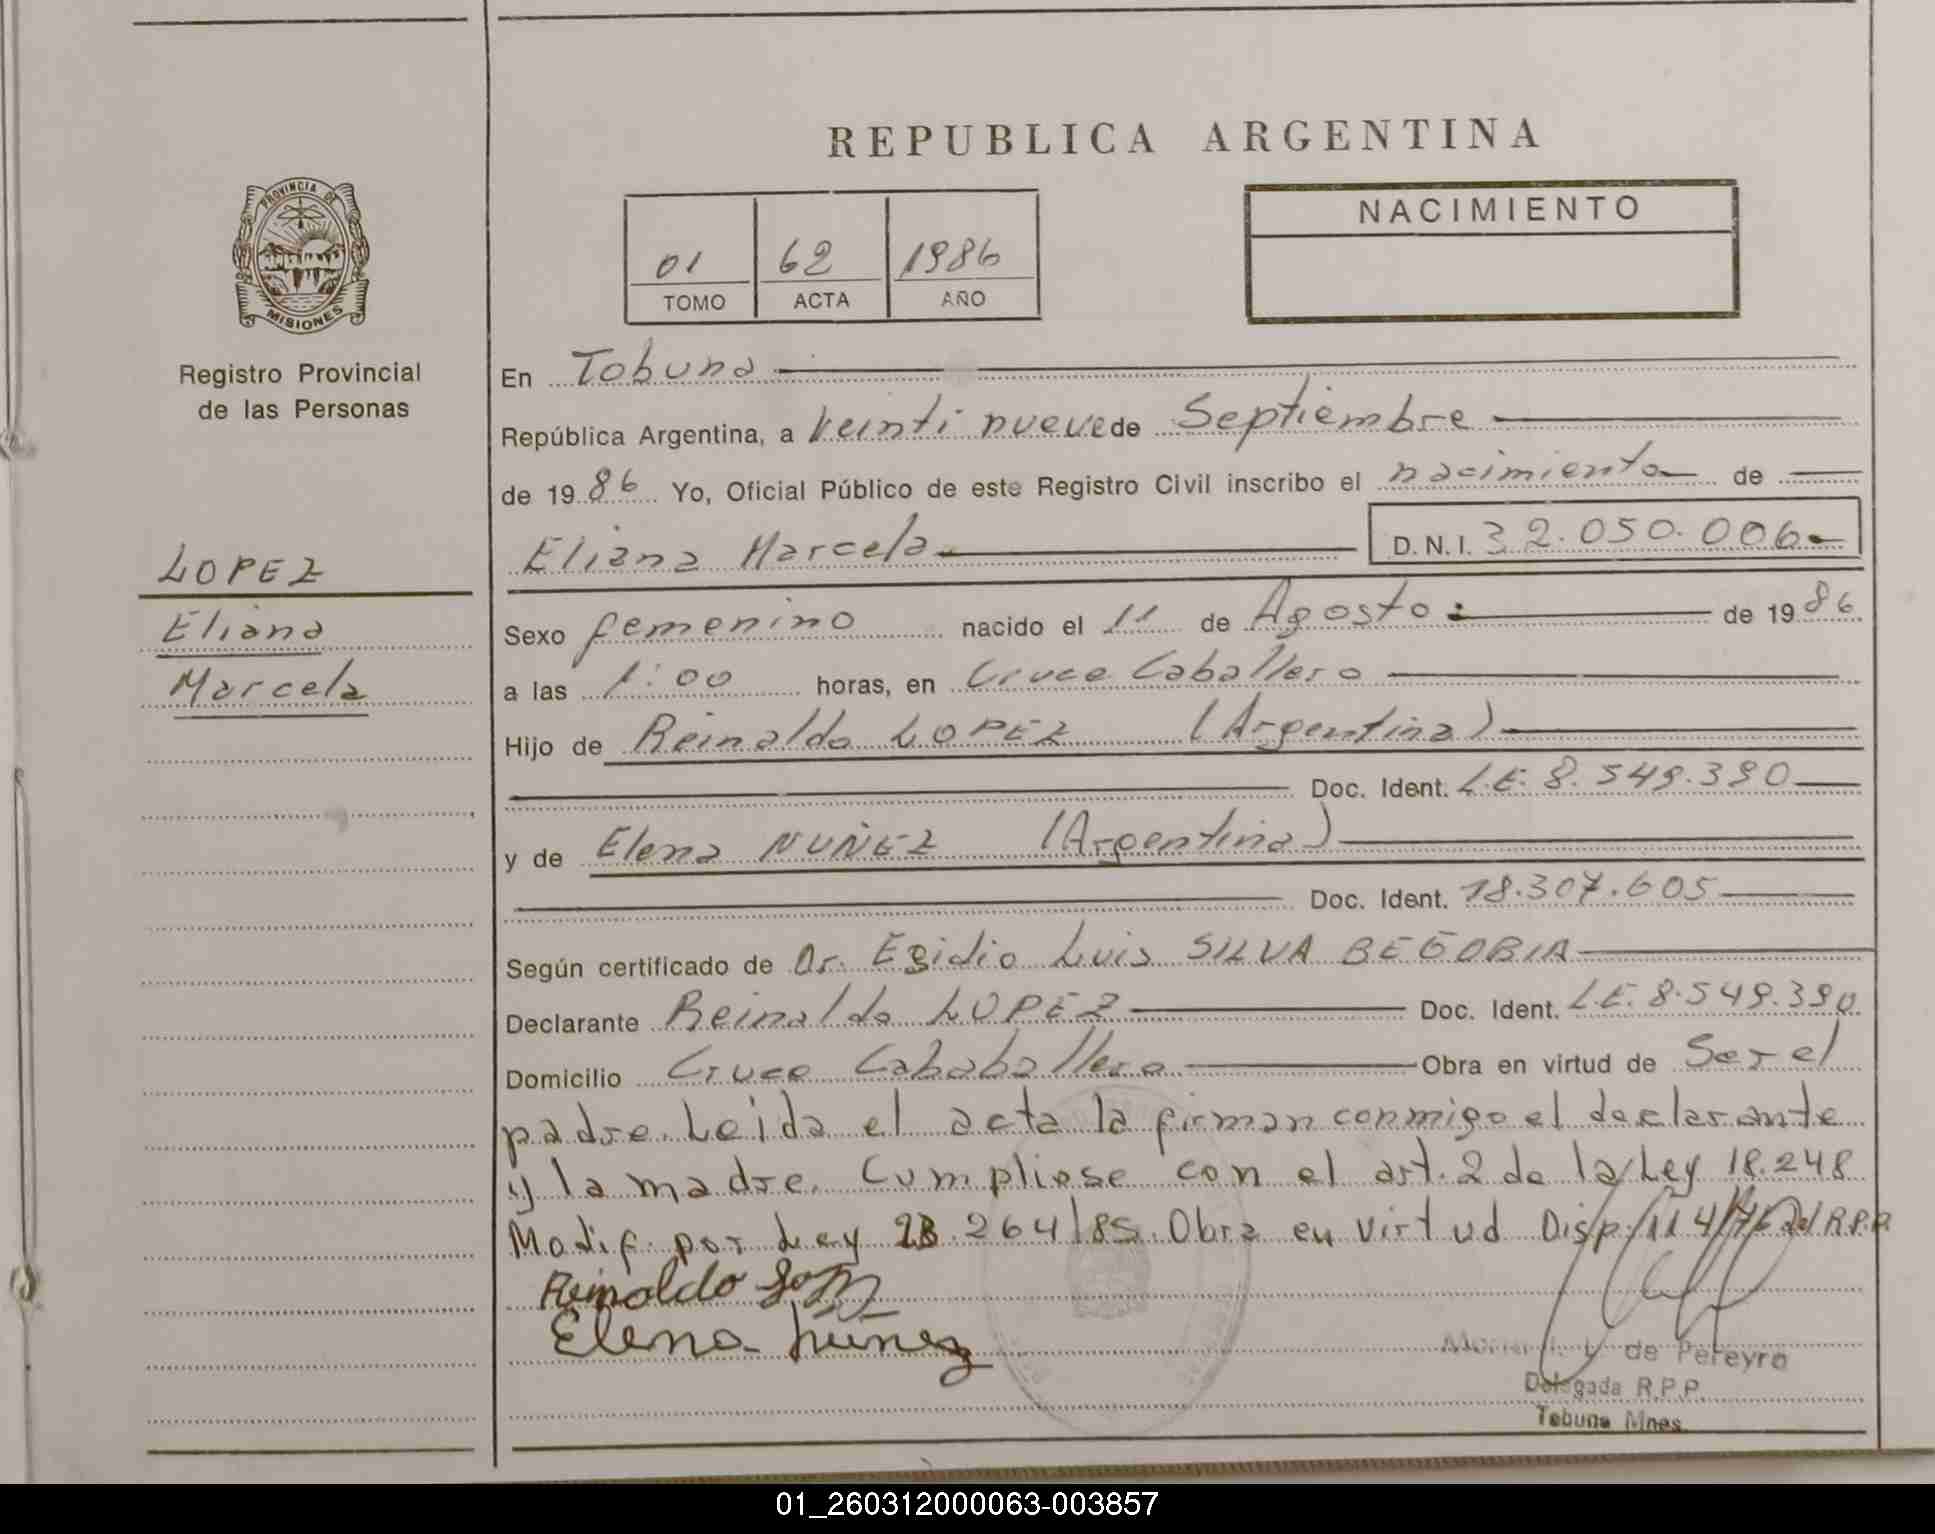 REPUBLICA ARGENTINA
PROVINCIA DE
MISIONES
Registro Provincial
de las Personas
LOPEZ
Eliana
Marcela
01 62 1986
TOMO ACTA AÑO
NACIMIENTO
En Tobuna
República Argentina, a Veinti nueve de Septiembre
de 1986 Yo, Oficial Público de este Registro Civil inscribo el nacimiento de
Eliana Marcela D.N.I. 32.050.006
Sexo femenino nacido el 11 de Agosto de 1986
a las 1:00 horas, en Cruce Caballero
Hijo de Reinaldo LOPEZ (Argentina)
Doc. Ident. L.E. 8.549.390
y de Elena NUÑEZ (Argentina)
Doc. Ident. 18.307.605
Según certificado de Dr. Egidio Luis SILVA
Declarante Reinaldo LOPEZ Doc. Ident. L.E. 8.549.390
Domicilio Cruce Cababallero Obra en virtud de Ser el
padre. Leida el acta la firman conmigo el declarante
y la madre. Cumpliose con el art. 2 de la Ley 18.248
Modif. por Ley 23.264/85. Obra en virtud Disp. 114/76 del R.P.P.
Reinaldo Lopez
Elena Núñez
de Pereyra
Delegada R.P.P.
Tobuna Mnes.
01_260312000063-003857